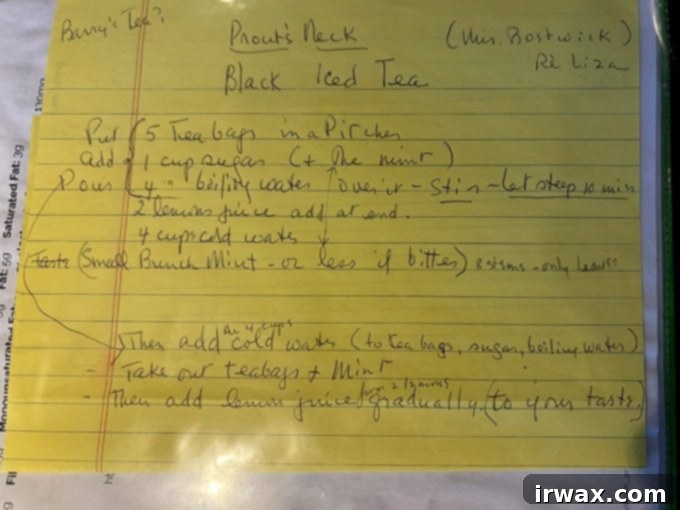 Barry's Tea?
Prout's Neck
(Mrs. Bostwick)
Re Liza
Black Iced Tea
Put 5 Tea bags in a Pitcher
add 1 cup sugar (+ the mint)
Pour 4 " boiling water over it - stir - let steep 10 min
2 lemons juice add at end.
4 cups cold water
Taste (Small Bunch Mint - or less if bitter) 3 stems - only leaves
Then add the 4 cups cold water (to tea bags, sugar, boiling water)
- Take out teabags + Mint
- Then add lemon juice from 2 lemons gradually (to your taste.)
Saturated Fat: 3g
Fat: 5g
irwax.com